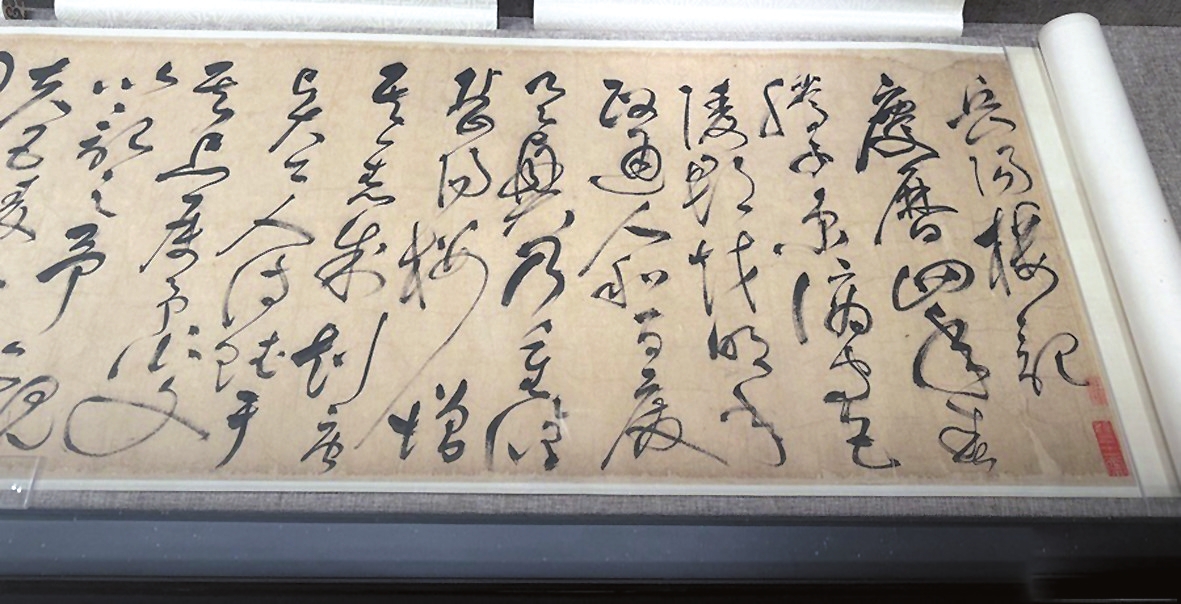 岳陽樓記
慶曆四年春
滕子京謫守巴
陵郡越明年
政通人和百廢
具興乃重修
岳陽樓增
其舊制刻唐
賢今人詩賦于
其上屬予作文
以記之予觀
夫巴陵